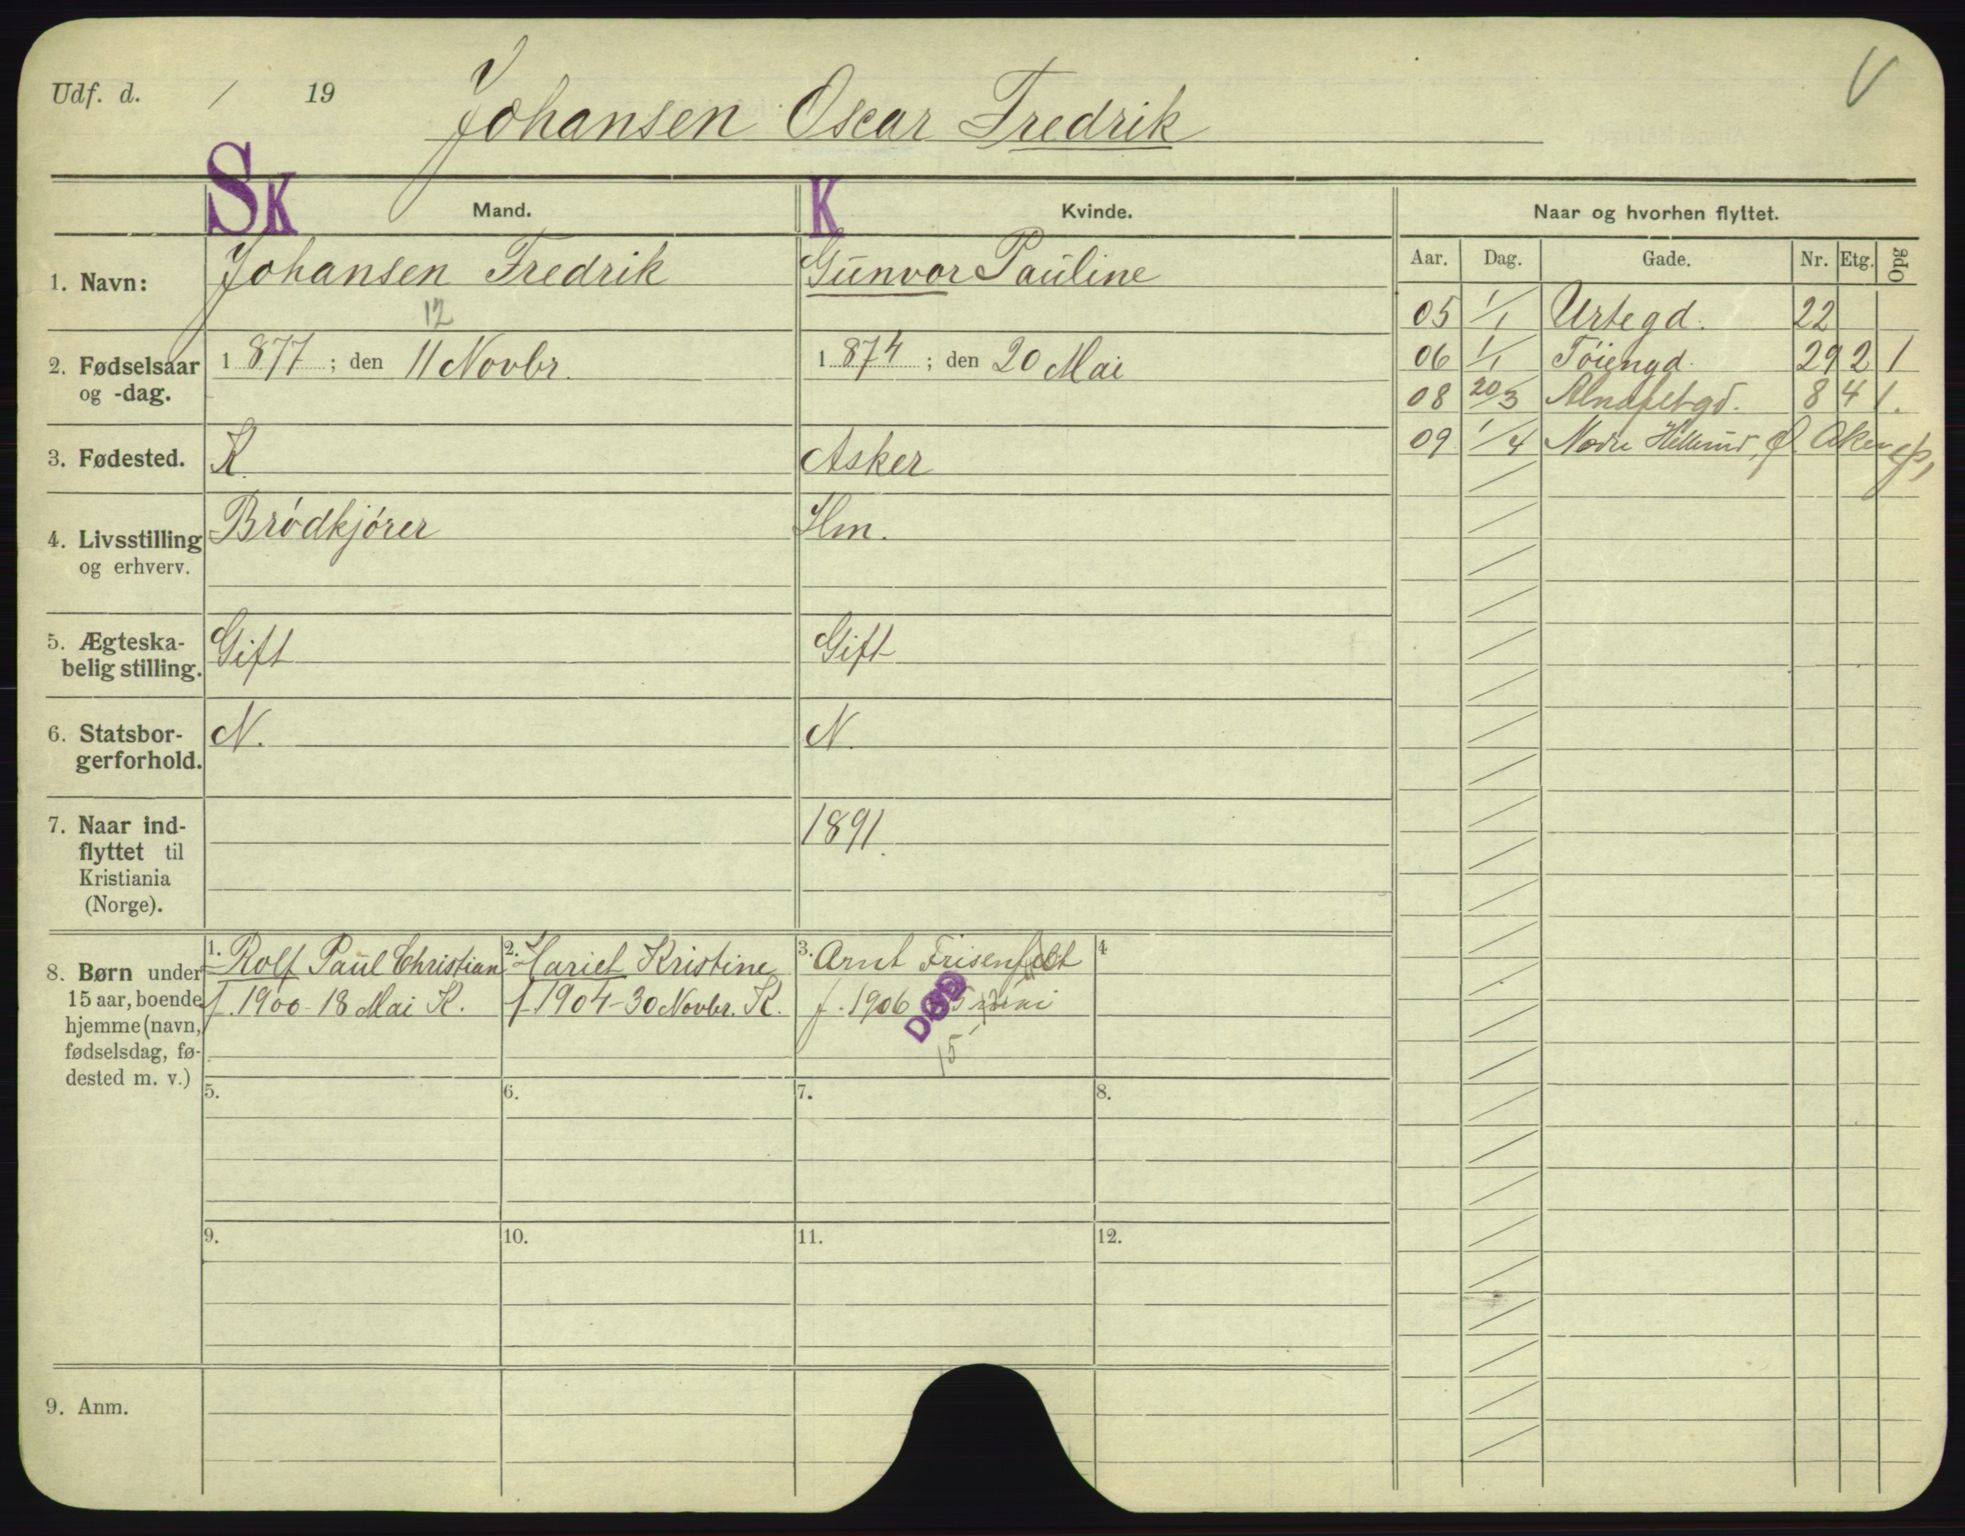 Udf. d. / 19 Johansen Oscar Fredrik V
Sk Mand. K Kvinde. Naar og hvorhen flyttet.
Aar. Dag. Gade. Nr. Etg. Opg
1. Navn: Johansen Fredrik Gunvor Pauline
05 1/1 Urtegd. 22
12
2. Fødselsaar og -dag. 1877; den 11 Novbr. 1874; den 20 Mai
06 1/1 Töiengd. 29 2 1
08 20/3 Alnafetgd. 8 4 1.
09 1/4 Nodre Ø. Aker
3. Fødested. K. Asker
4. Livsstilling og erhverv. Brödkjörer Hm.
5. Ægteska-
belig stilling. Gift Gift
6. Statsbor-
gerforhold. N. N.
7. Naar ind-
flyttet til
Kristiania
(Norge). 1891.
8. Børn under
15 aar, boende
hjemme (navn,
fødselsdag, fø-
dested m. v.)
1. Rolf Paul Christian
f. 1900 - 18 Mai K.
2. Hariet Kristine
f. 1904 - 30 Novbr. K.
3. Arnt Frisenfeldt
f. 1906
DØD
15
4
5. 6. 7. 8.
9. 10. 11. 12.
9. Anm.